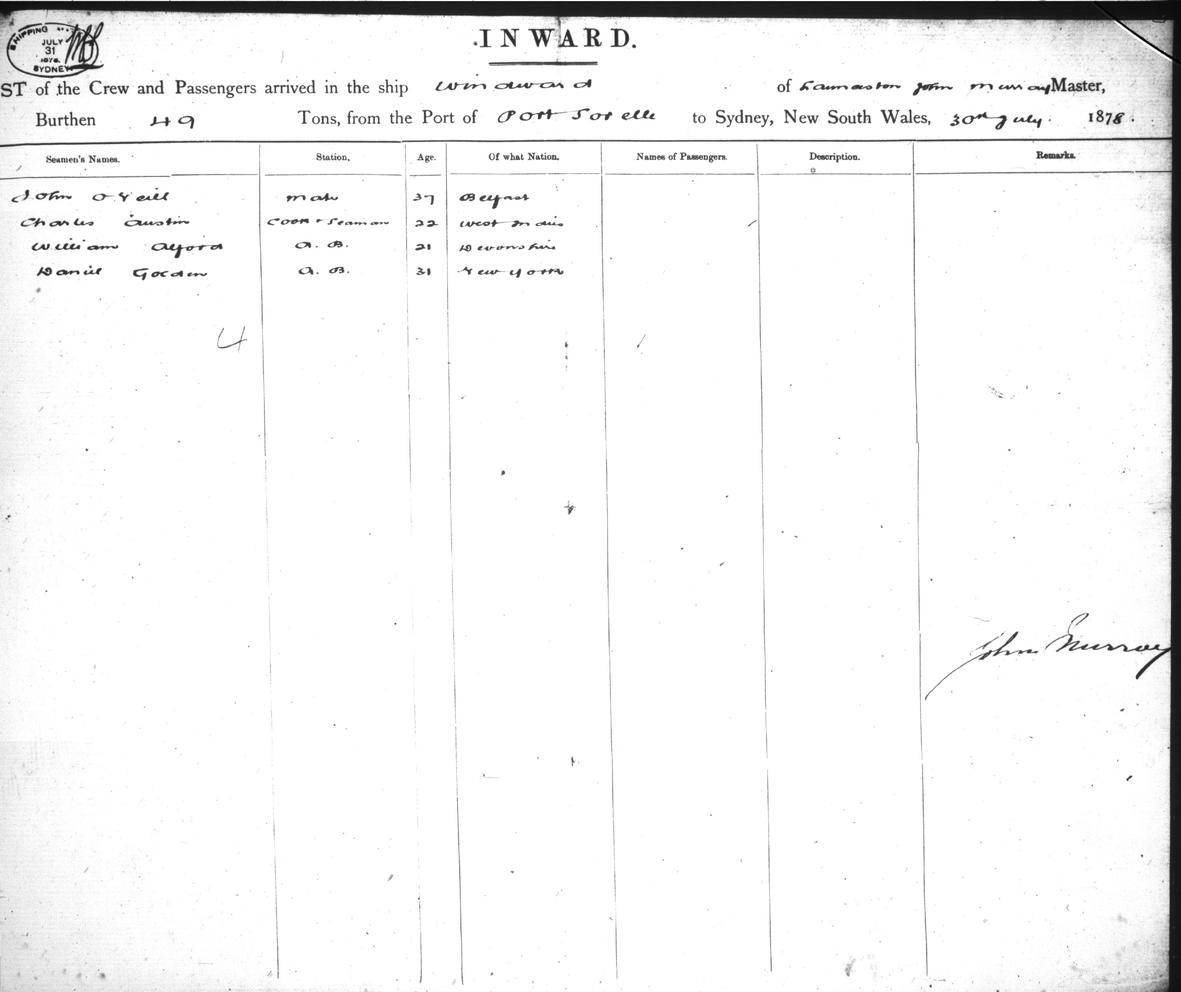 SHIPPING
JULY
31
1878
SYDNEY
INWARD.
ST of the Crew and Passengers arrived in the ship Windward of Launceston John Murray Master,
Burthen 49 Tons, from the Port of Port Sorelle to Sydney, New South Wales, 30th July 1878.
Seamen's Names. Station. Age. Of what Nation. Names of Passengers. Description. Remarks.
John O Neill Mate 37 Belfast
Charles Austin Cook & Seaman 22 West Indies
William Alford A. B. 21 Devonshire
Daniel A. B. 31 New York
4
John Murray